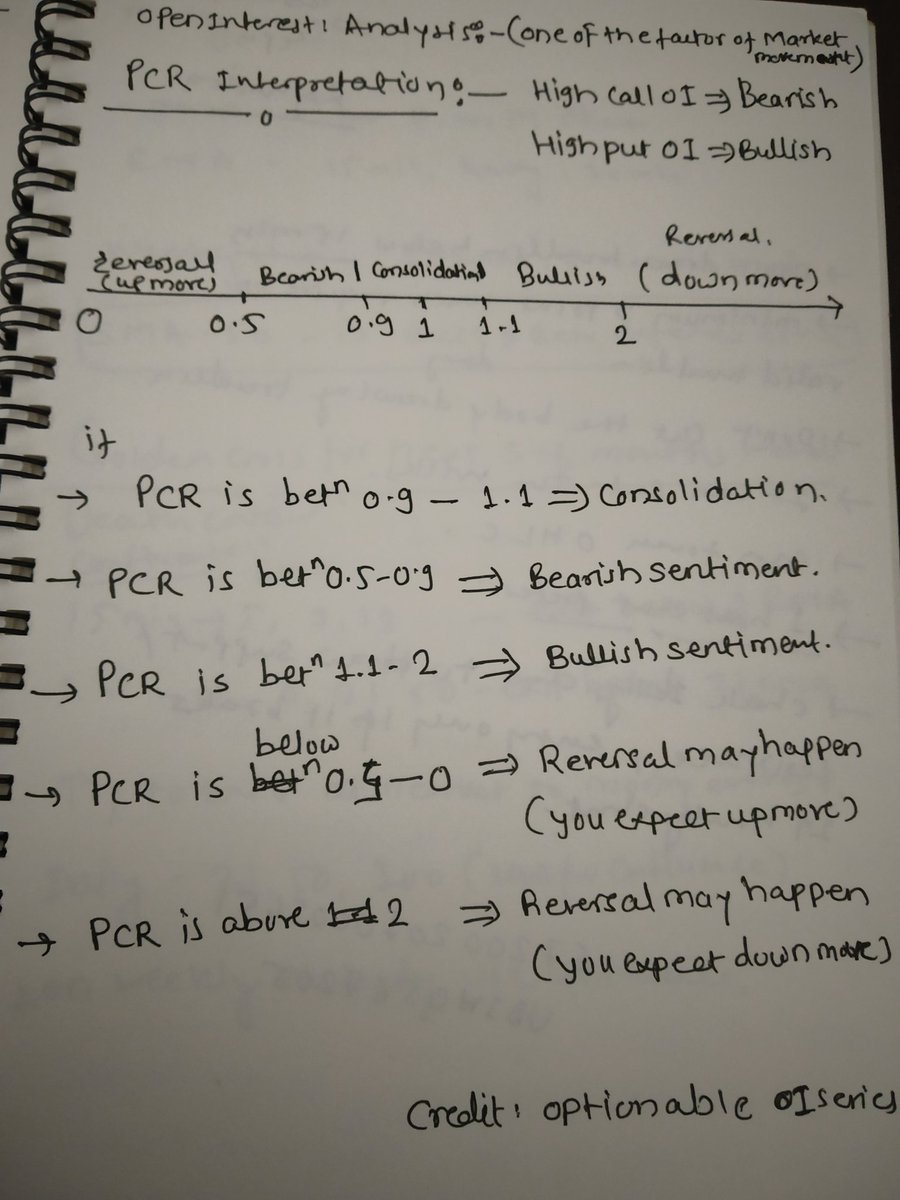 Open Interest: Analysis:- (one of the factor of Market
movement)
PCR Interpretation:- High call OI ⇒ Bearish
High put OI ⇒ Bullish
Reversal.
Reversal Bearish | Consolidation | Bullish (down move)
(up move)
0 0.5 0.9 1 1.1 2
if
→ PCR is betⁿ 0.9 - 1.1 ⇒ Consolidation.
→ PCR is betⁿ 0.5-0.9 ⇒ Bearish sentiment.
→ PCR is betⁿ 1.1 - 2 ⇒ Bullish sentiment.
below
→ PCR is betⁿ 0.5 - 0 ⇒ Reversal may happen
(you expect up move)
→ PCR is above 2 ⇒ Reversal may happen
(you expect down move)
Credit: optionable OI series